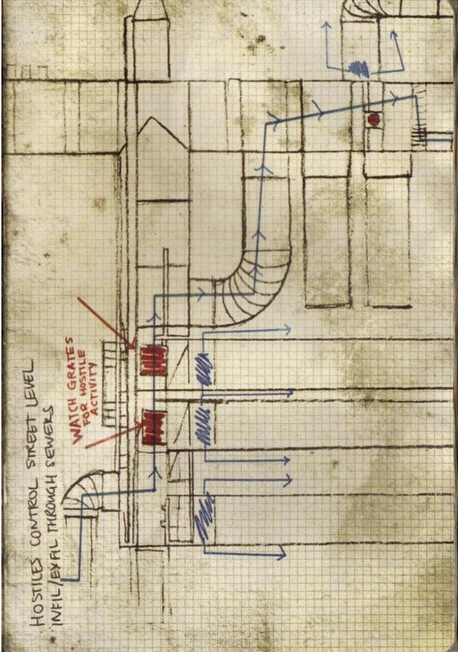 HOSTILES CONTROL STREET LEVEL
INFIL/EXFIL THROUGH SEWERS
WATCH GRATES
FOR HOSTILE
ACTIVITY